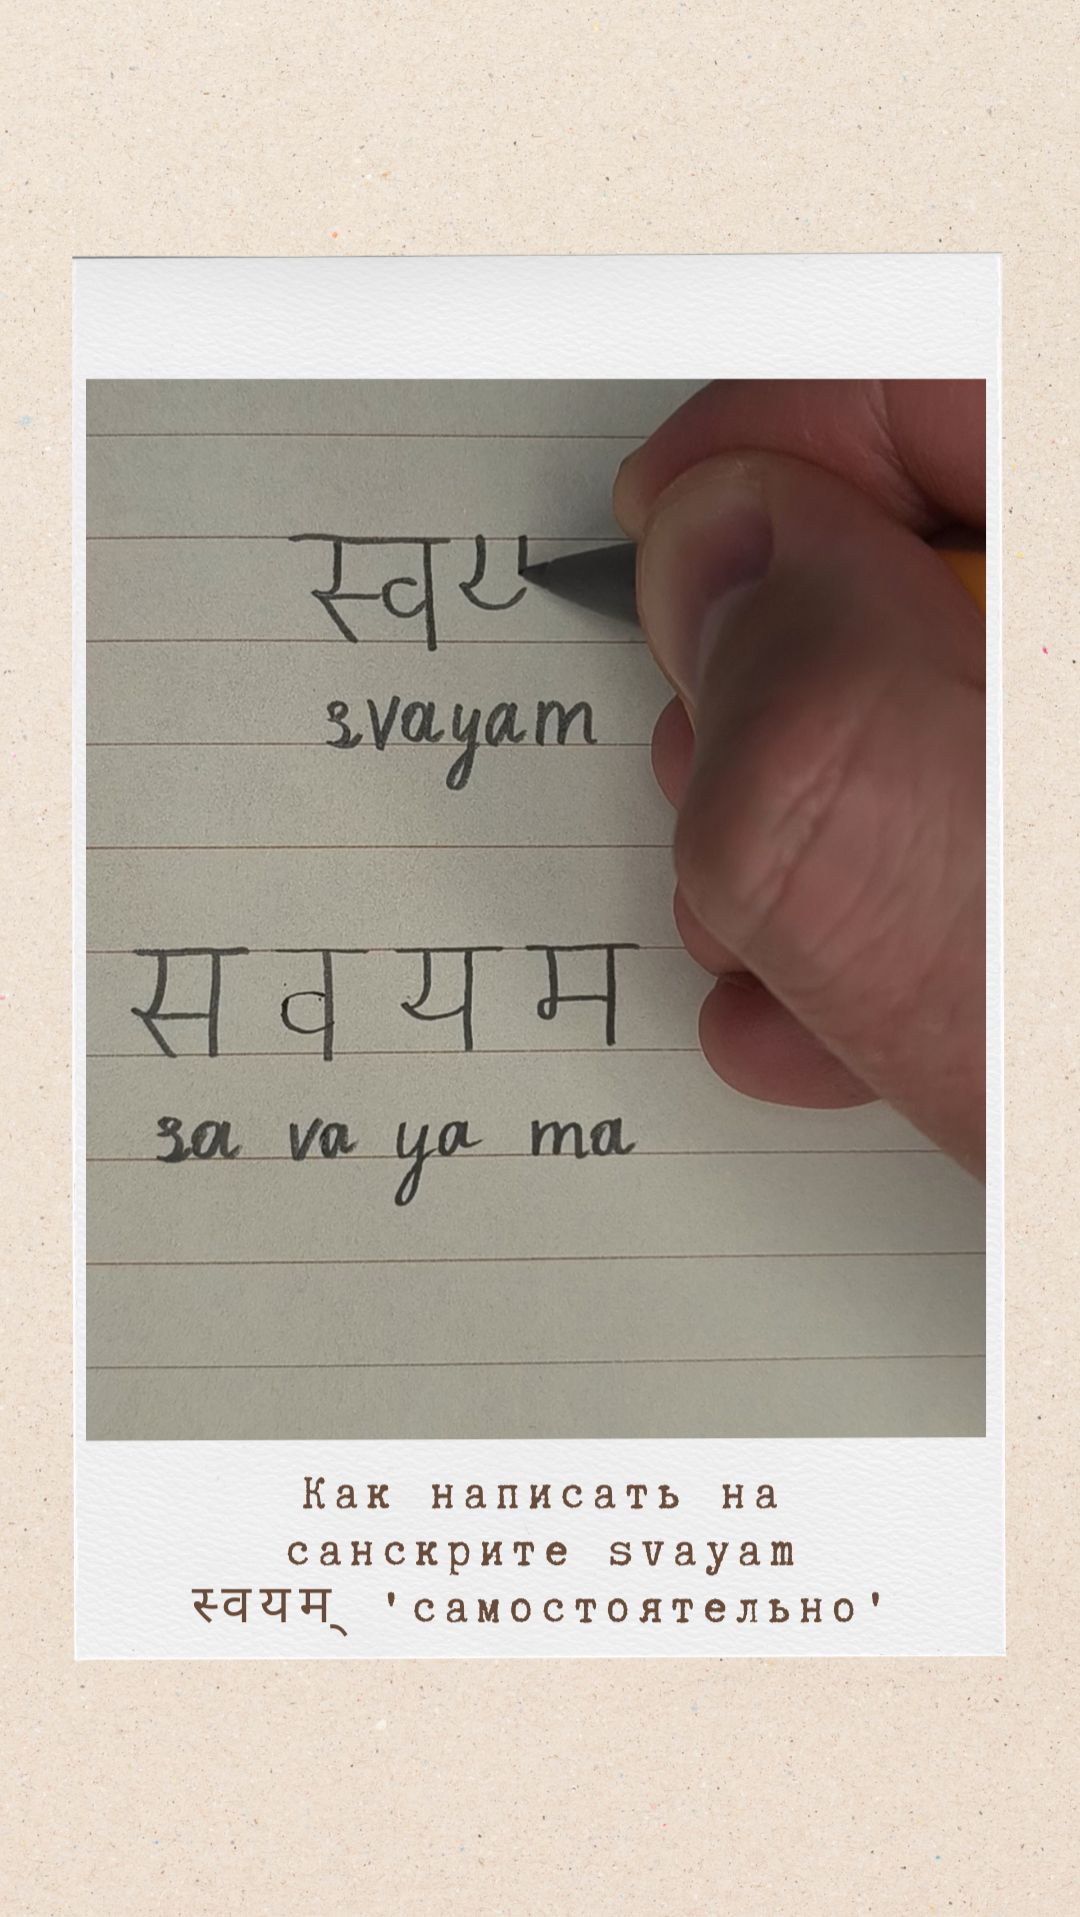 स्वय
svayam
स व य म
sa va ya ma
Как написать на
санскрите svayam
स्वयम् 'самостоятельно'